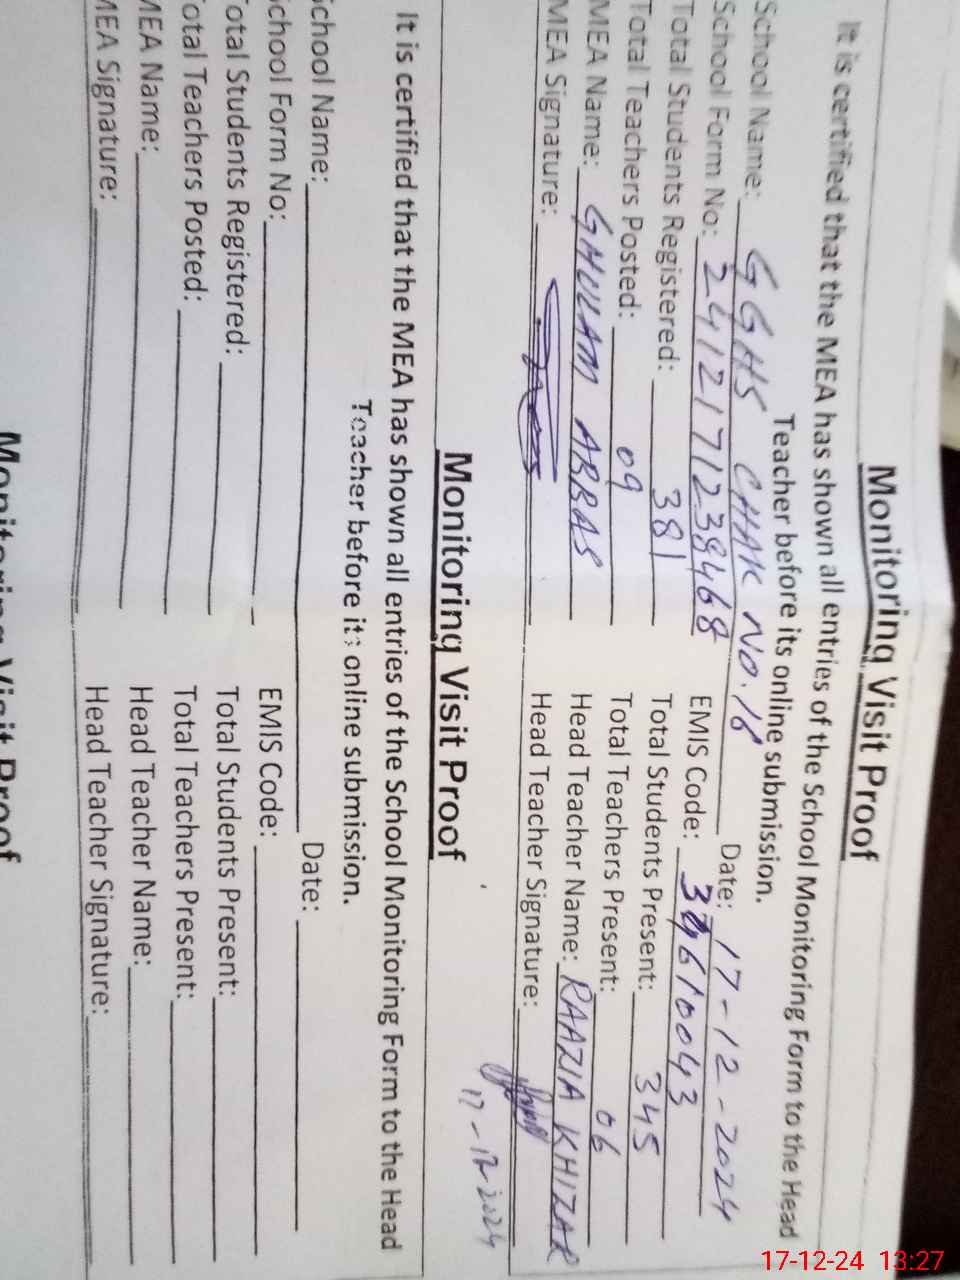 Monitoring Visit Proof
It is certified that the MEA has shown all entries of the School Monitoring Form to the Head
Teacher before its online submission.
School Name: GGHS CHAK NO.16 Date: 17-12-2024
School Form No: 2412171238468 EMIS Code: 610043
Total Students Registered: 381 Total Students Present: 345
Total Teachers Posted: 09 Total Teachers Present: 06
MEA Name: GHULAM ABBAS Head Teacher Name: RAAZIA KHIZAR
MEA Signature: Head Teacher Signature:
17-12-2024
Monitoring Visit Proof
It is certified that the MEA has shown all entries of the School Monitoring Form to the Head
Teacher before its online submission.
School Name: Date:
School Form No: EMIS Code:
Total Students Registered: Total Students Present:
Total Teachers Posted: Total Teachers Present:
MEA Name: Head Teacher Name:
MEA Signature: Head Teacher Signature:
Monitoring Visit Proof
17-12-24 13:27